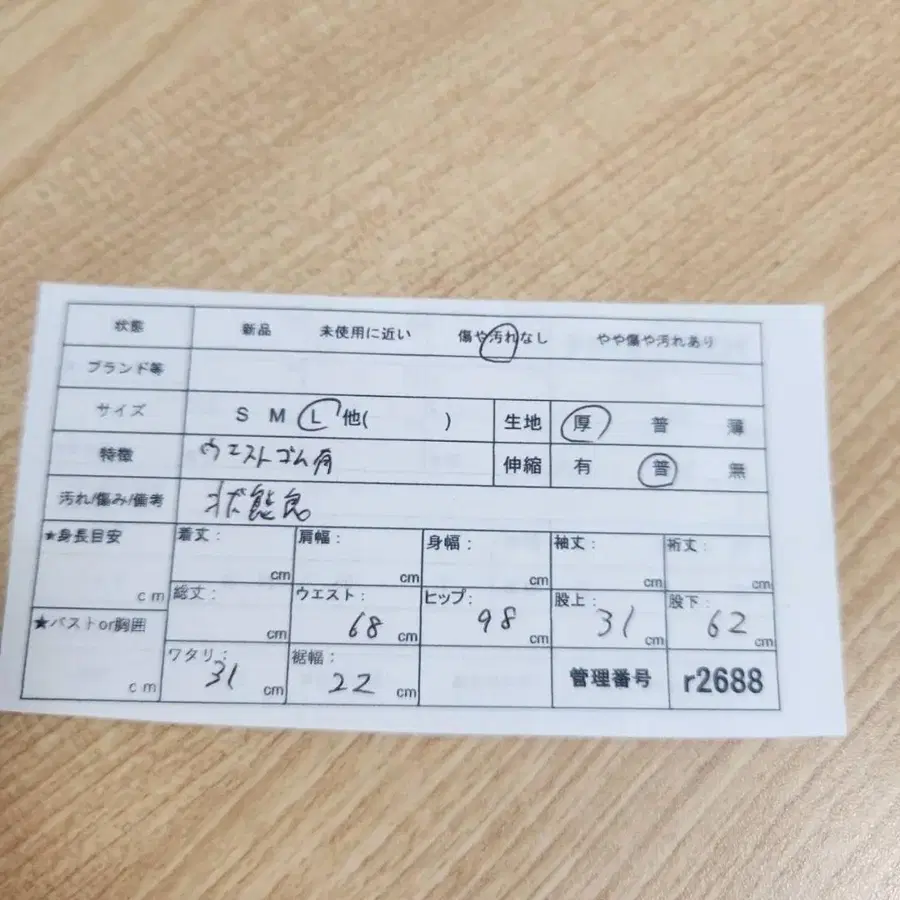 状態 新品 未使用に近い 傷や汚れなし やや傷や汚れあり
ブランド等
サイズ S M L 他( ) 生地 厚 普 薄
特徴 ウエストゴム有 伸縮 有 普 無
汚れ/傷み/備考 状態良
★身長目安 cm 着丈: cm 肩幅: cm 身幅: cm 袖丈: cm 裄丈: cm
総丈: cm ウエスト: 68 cm ヒップ: 98 cm 股上: 31 cm 股下: 62 cm
★バストor胸囲 cm ワタリ: 31 cm 裾幅: 22 cm 管理番号 r2688